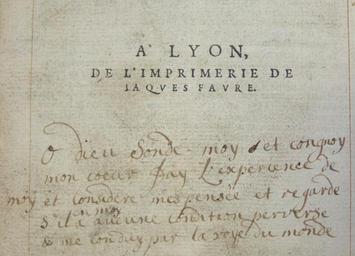 A' LYON,
DE L'IMPRIMERIE DE
IAQVES FAVRE.
O dieu Sonde moy et congnoy
mon coeur fay L'experience de
moy et considere mes pensée et regarde
en moy
s'il a aucune condition perverse
& me conduy par la voye du monde